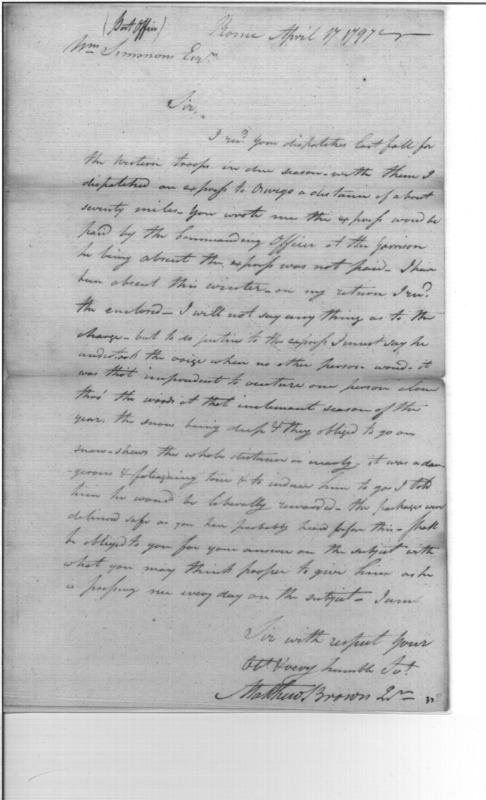 (Post Office) Rome April 17 1797
Wm Simmons Esqr
Sir,
I recd your dispatches last fall for
the Western troops in due season - with them I
dispatched an express to Oswego a distance of about
seventy miles - You wrote me the express would be
paid by the Commanding Officer at the Garrison
he being absent the express was not paid - I have
been absent this winter - on my return I recd
the enclosed - I will not say any thing as to the
charge - but to do justice to the express I must say he
undertook the voige when no other person would - it
was that imprudent to venture one person alone
thro' the woods at that inclemant season of the
year, the snow being deep & they obliged to go on
snow-shews the whole distance or nearly it was a dan
gerous & fatagueing tour & to induce him to go I told
him he would be liberally rewarded - the packages were
delivered safe as you have probably heard before this - shall
be obliged to you for your answer on the subject with
what you may think proper to give him as he
is pressing me every day on the subject - I am
Sir with respect your
Obt & very humble Svt
Matthew Brown Jr